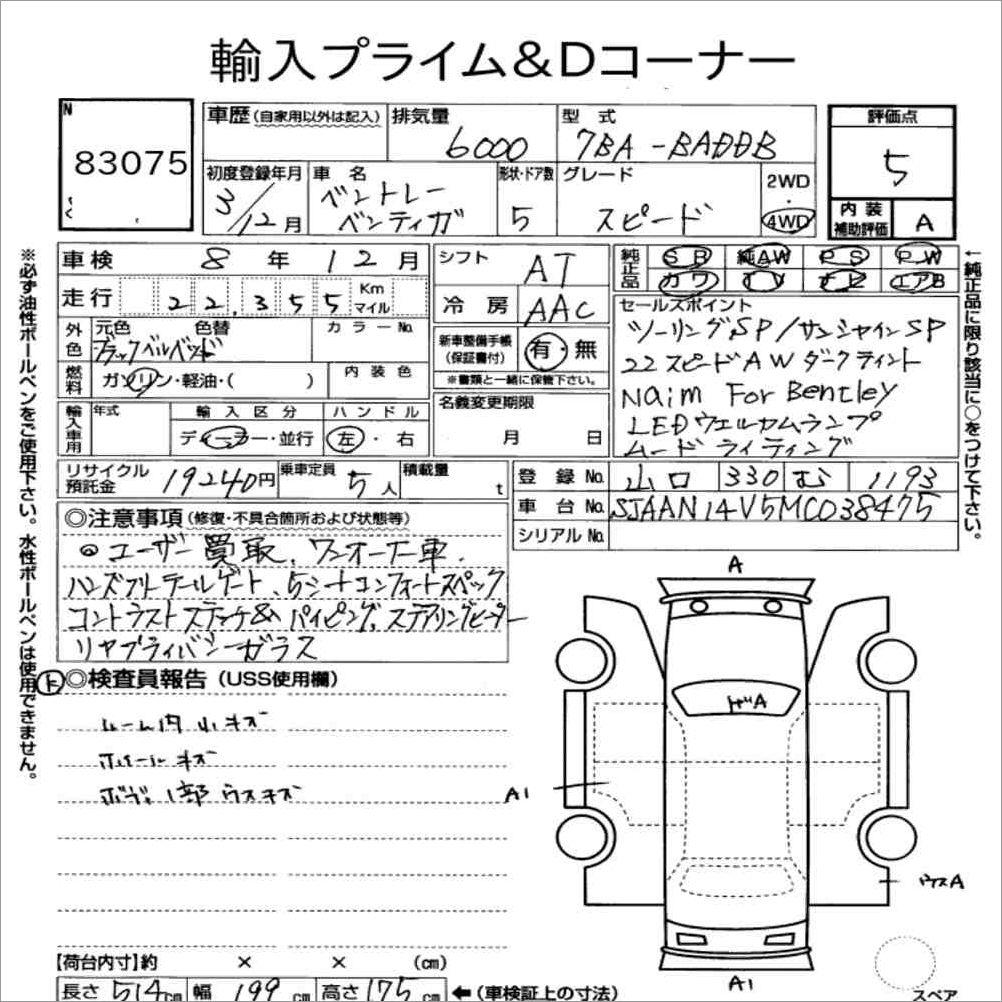 輸入プライム&Dコーナー
N
83075
車歴 (自家用以外は記入)
排気量
6000
型 式
7BA-BADDB
評価点
5
内装補助評価
A
初度登録年月
3/12月
車 名
ベントレー
ベンティガ
形状・ドア数
5
グレード
スピード
2WD
・
4WD
車検 8年 12月
走行 22,355 Km マイル
シフト AT
冷房 AAC
純正品 SR 純AW PS PW
カワ TV ナビ エアB
外色 元色 色替 カラーNo.
ブラックベルベット
燃料 ガソリン・軽油・( )
内装色
新車整備手帳(保証書付) 有・無
※書類と一緒に保管下さい。
セールスポイント
ツーリングSP/サンシャインSP
22スピードAWダークティント
Naim For Bentley
LEDウェルカムランプ
ムードライティング
輸入車用 年式
輸入区分
ディーラー・並行
ハンドル
左・右
名義変更期限
月 日
リサイクル預託金 19240円
乗車定員 5人
積載量 t
登録No. 山口 330 む 1193
車台No. SJAAN14V5MC038475
シリアルNo.
◎注意事項 (修復・不具合箇所および状態等)
◎ユーザー買取、ワンオーナー車.
ハンズフリーテールゲート、5シートコンフォートスペック
コントラストステッチ&パイピング、ステアリングヒーター
リヤプライバシーガラス
下
◎検査員報告 (USS使用欄)
ルーム内小キズ
ホイールキズ
ボディ1部ウスキズ
※必ず油性ボールペンをご使用下さい。水性ボールペンは使用できません。
←純正品に限り該当に○をつけて下さい。
A
トビA
A1
ウスA
A1
スペア
【荷台内寸】約 × × (cm)
長さ 514cm 幅 199cm 高さ 175cm ←(車検証上の寸法)